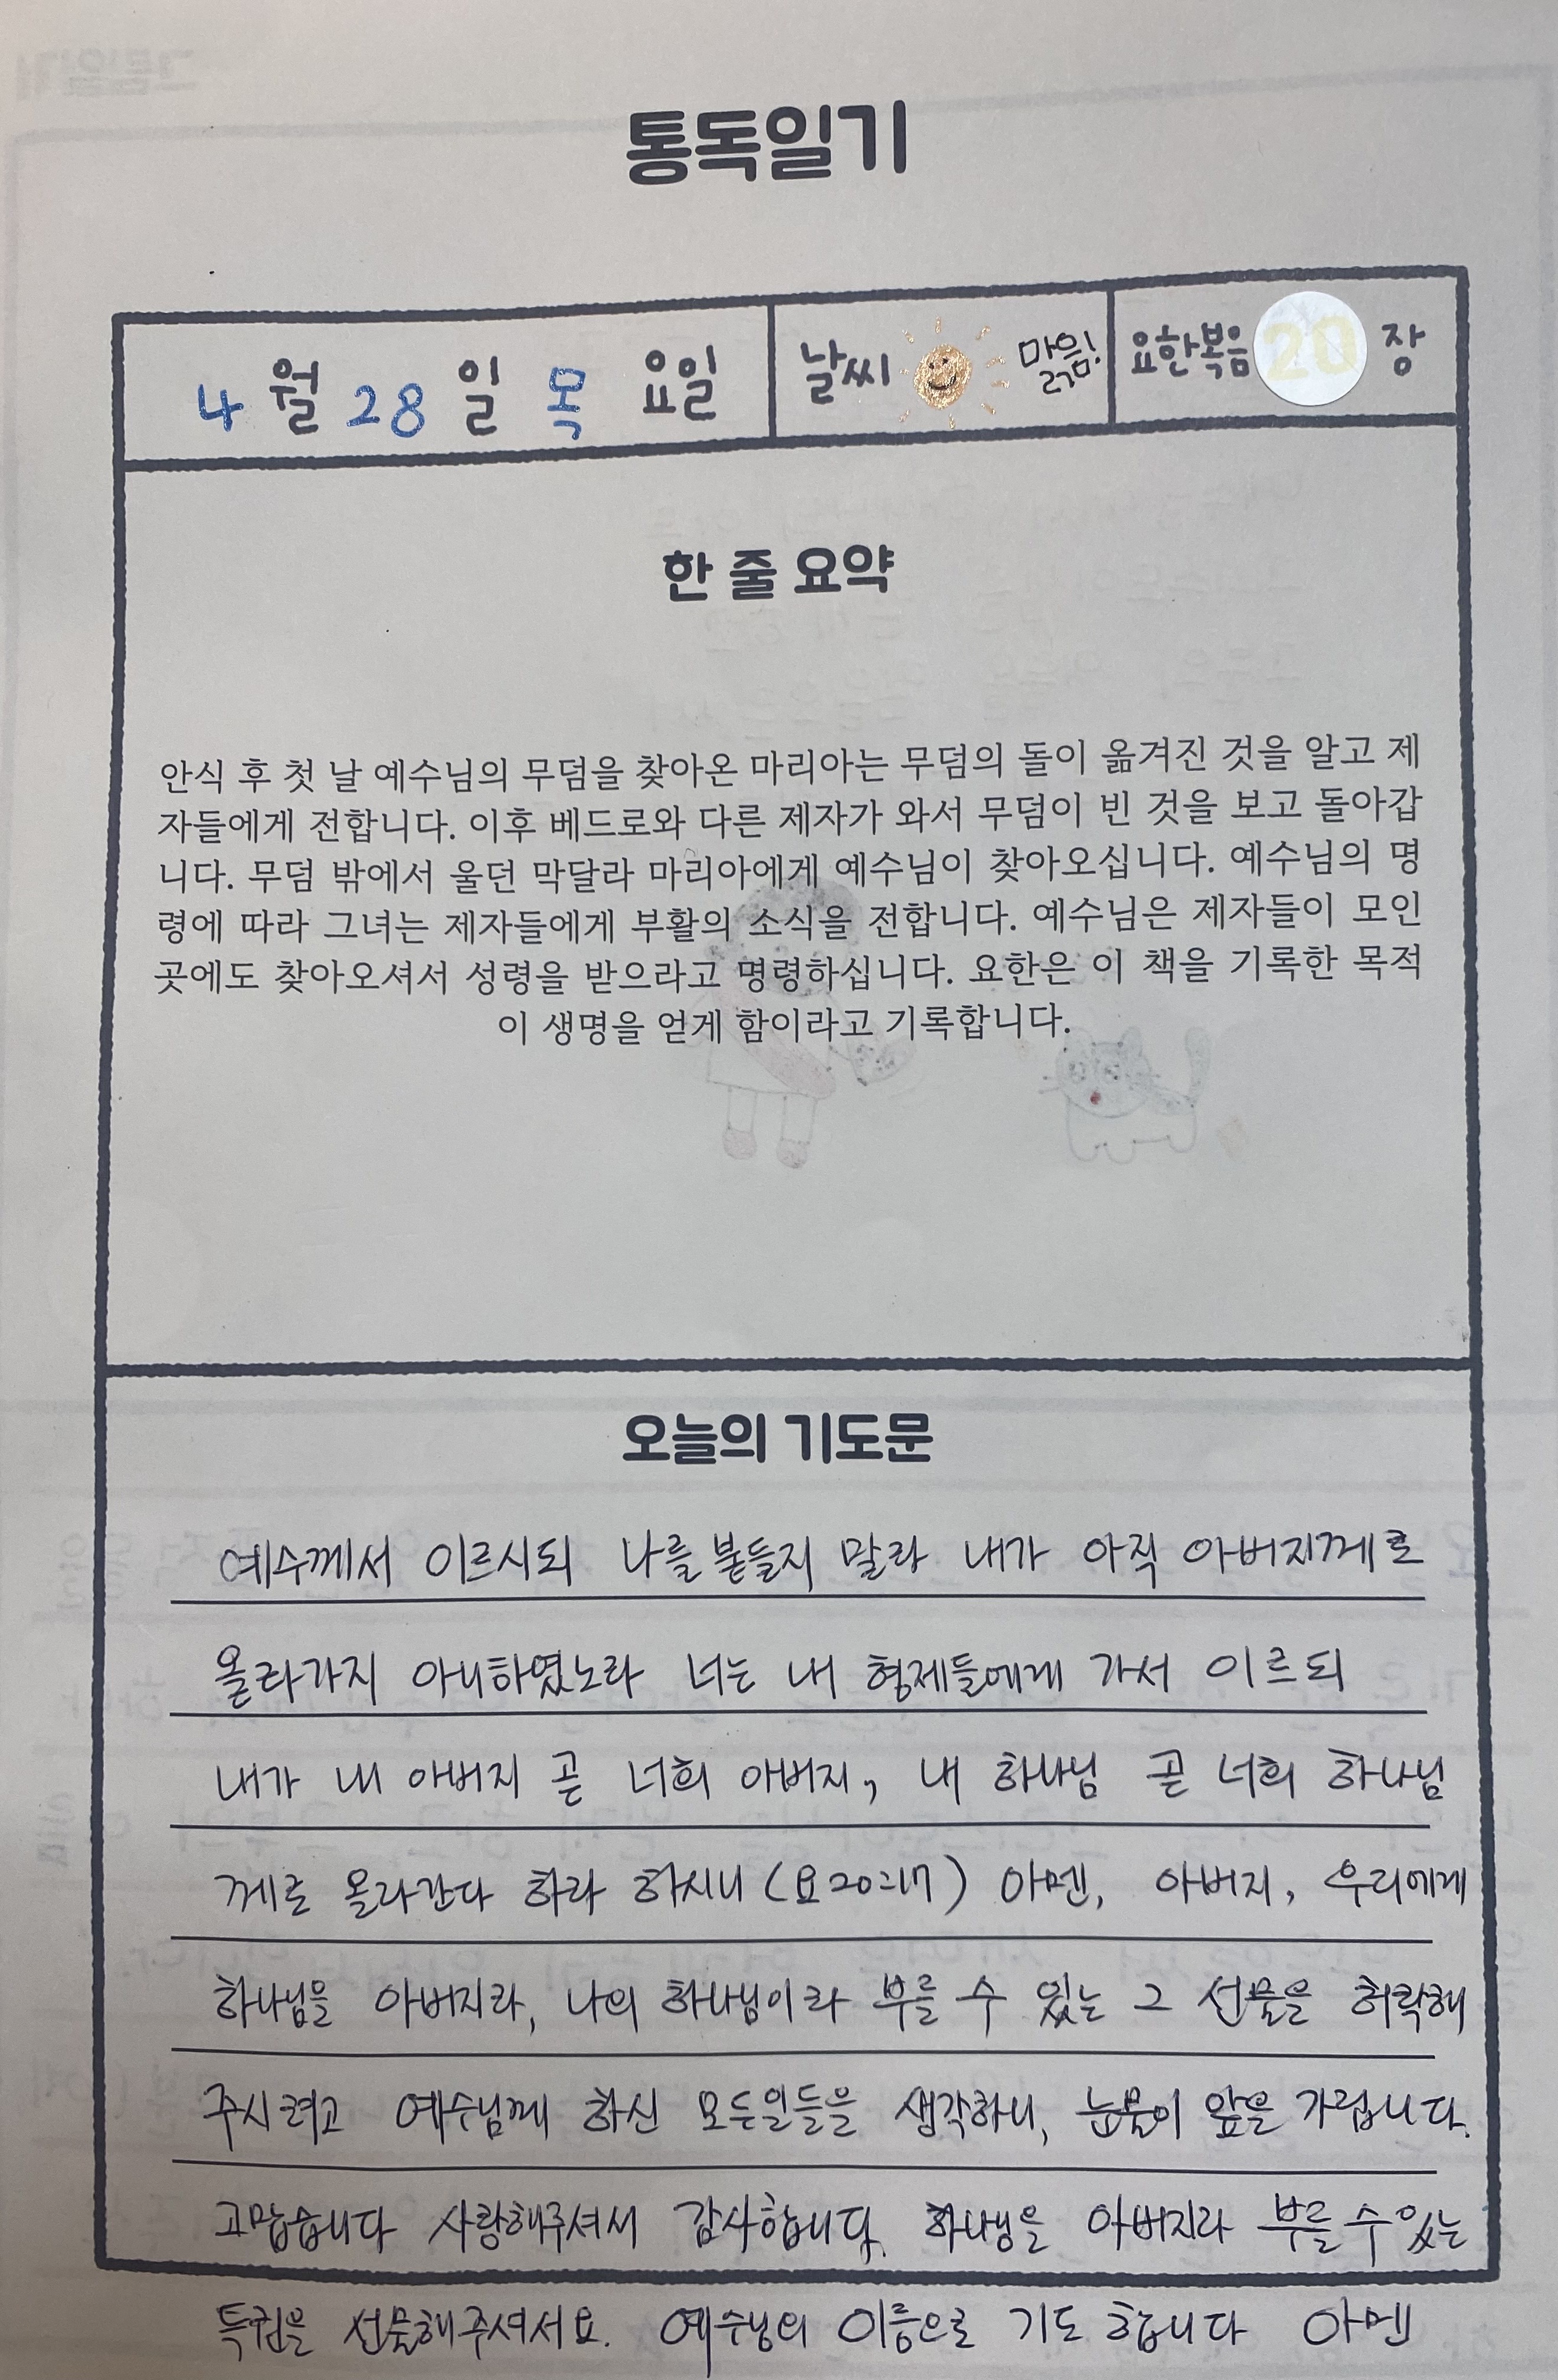 통독일기
4 월 28 일 목 요일 날씨 맑음! 요한복음 20 장
한 줄 요약
안식 후 첫 날 예수님의 무덤을 찾아온 마리아는 무덤의 돌이 옮겨진 것을 알고 제
자들에게 전합니다. 이후 베드로와 다른 제자가 와서 무덤이 빈 것을 보고 돌아갑
니다. 무덤 밖에서 울던 막달라 마리아에게 예수님이 찾아오십니다. 예수님의 명
령에 따라 그녀는 제자들에게 부활의 소식을 전합니다. 예수님은 제자들이 모인
곳에도 찾아오셔서 성령을 받으라고 명령하십니다. 요한은 이 책을 기록한 목적
이 생명을 얻게 함이라고 기록합니다.
오늘의 기도문
예수께서 이르시되 나를 붙들지 말라 내가 아직 아버지께로
올라가지 아니하였노라 너는 내 형제들에게 가서 이르되
내가 내 아버지 곧 너희 아버지, 내 하나님 곧 너희 하나님
께로 올라간다 하라 하시니 (요20:17) 아멘, 아버지, 우리에게
하나님을 아버지라, 나의 하나님이라 부를 수 있는 그 선물을 허락해
주시려고 예수님께 하신 모든일들을 생각하니, 눈물이 앞을 가립니다.
고맙습니다 사랑해주셔서 감사합니다. 하나님을 아버지라 부를 수 있는
특권을 선물해주셔서요. 예수님의 이름으로 기도 합니다 아멘